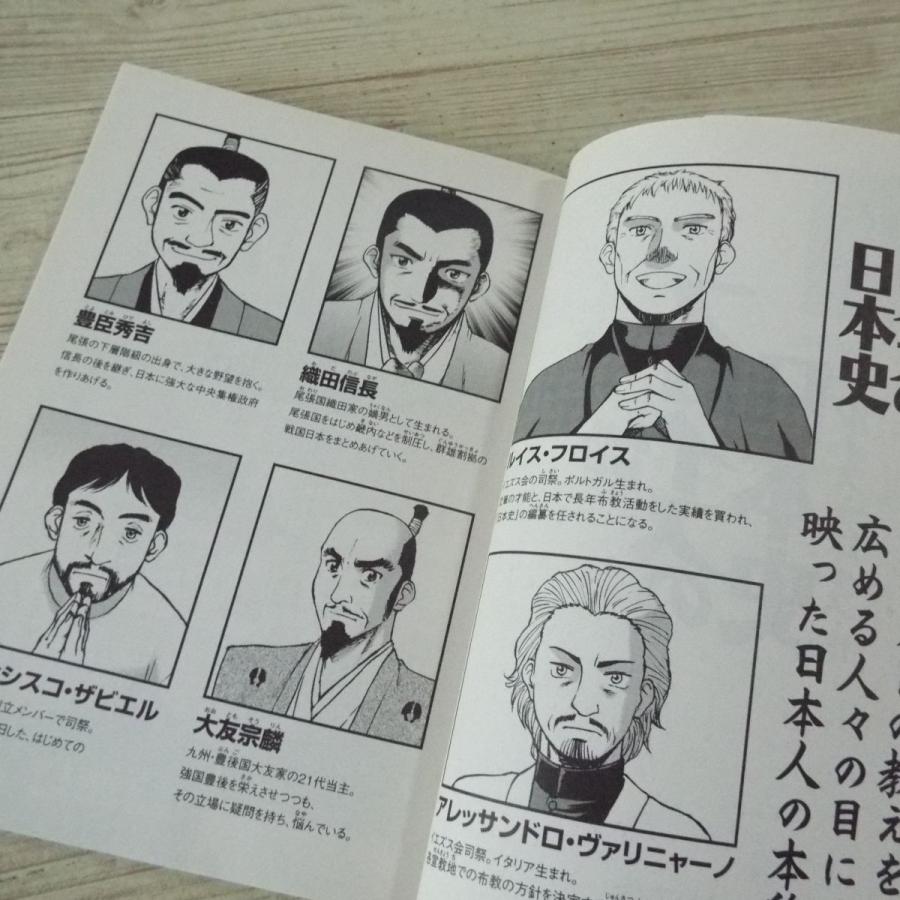 豊臣秀吉
尾張の下層階級の出身で、大きな野望を抱く。
信長の後を継ぎ、日本に強大な中央集権政府
を作りあげる。
織田信長
尾張国織田家の嫡男として生まれる。
尾張国をはじめ畿内などを制圧し、群雄割拠の
戦国日本をまとめあげていく。
シスコ・ザビエル
立メンバーで司祭。
した、はじめての
大友宗麟
九州・豊後国大友家の21代当主。
強国豊後を栄えさせつつも、
その立場に疑問を持ち、悩んでいる。
ルイス・フロイス
エズス会の司祭。ポルトガル生まれ。
の才能と、日本で長年布教活動をした実績を買われ、
日本史」の編纂を任されることになる。
アレッサンドロ・ヴァリニャーノ
イエズス会司祭。イタリア生まれ。
宣教地での布教の方針を決定
日本史
の教えを
広める人々の目に
映った日本人の本